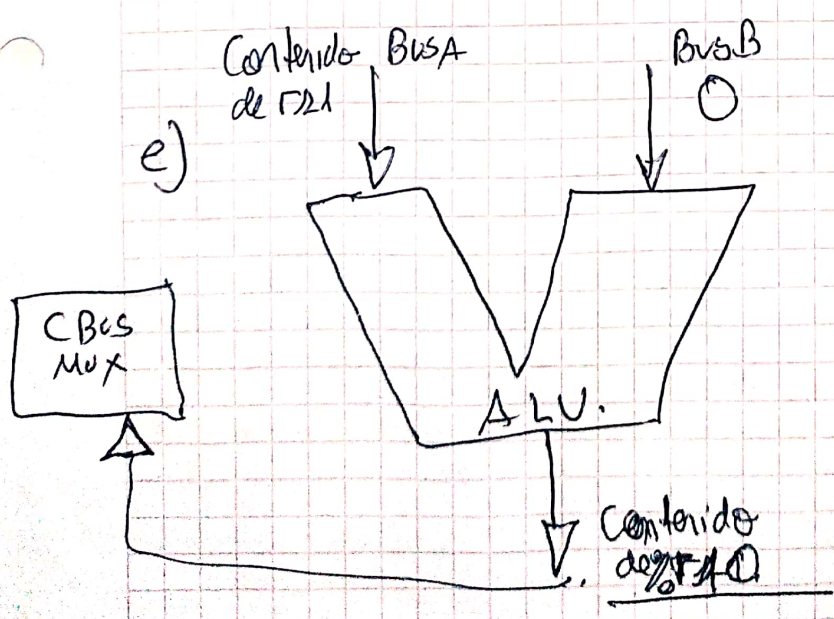 Contenido BusA
de r21
BusB
0
e)
C Bus
MUX
ALU.
Contenido
de %r10